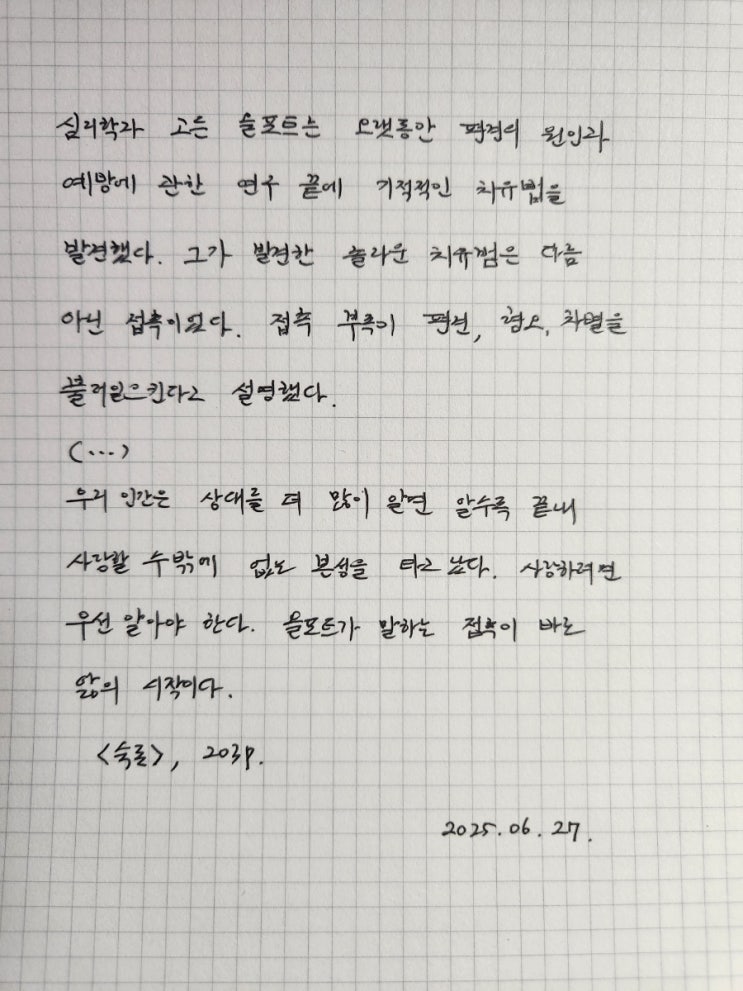 심리학자 고든 올포트는 오랫동안 편견의 원인과
예방에 관한 연구 끝에 기적적인 치유법을
발견했다. 그가 발견한 놀라운 치유법은 다름
아닌 접촉이었다. 접촉 부족이 편견, 혐오, 차별을
불러일으킨다고 설명했다.
(...)
우리 인간은 상대를 더 많이 알면 알수록 끝내
사랑할 수밖에 없는 본성을 타고 났다. 사랑하려면
우선 알아야 한다. 올포트가 말하는 접촉이 바로
앎의 시작이다.
<숙론>, 203p.
2025.06.27.